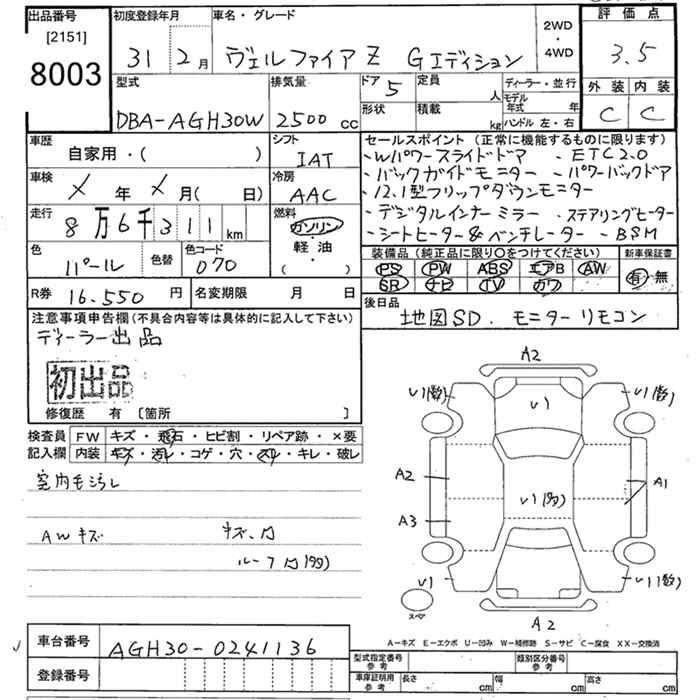 出品番号 初度登録年月 車名・グレード 2WD・4WD 評価点
[2151]
8003 31 2月 ヴェルファイア Z Gエディション 3.5
外装 内装
C C
型式 排気量 ドア 5 定員 人 ディーラー・並行
DBA-AGH30W 2500 cc 形状 積載 kg モデル年式 年
ハンドル 左・右
車歴 シフト セールスポイント (正常に機能するものに限ります)
自家用・( ) IAT ・Wパワースライドドア ・ETC2.0
車検 冷房 ・バックガイドモニター ・パワーバックドア
メ 年 メ 月( 日) AAC ・12.1型フリップダウンモニター
走行 燃料 ・デジタルインナーミラー ・ステアリングヒーター
8万6千311km ガソリン・軽油・( ) ・シートヒーター&ベンチレーター ・BSM
色 色替 色コード 装備品 (純正品に限り○をつけてください) 新車保証書
パール 070 PS PW ABS エアB AW 有・無
SR ナビ TV カワ
R券 16.550 円 名変期限 月 日 後日品
地図SD. モニターリモコン
注意事項申告欄(不具合内容等は具体的に記入して下さい)
ディーラー出品
初出品
修復歴 有 [箇所 ]
検査員記入欄 FW キズ・飛石・ヒビ割・リペア跡・×要
内装 キズ・汚レ・コゲ・穴・スレ・キレ・破レ
室内毛汚レ
AWキズ キズ、凹
ルーフ凹(多)
A2
U1(多) U1 U1(多)
A2 U1(多) A1
A3
U1 U1(多)
スペア A2
A-キズ E-エクボ U-凹み W-補修跡 S-サビ C-腐食 XX-交換済
車台番号 AGH30-0241136 型式指定番号 参考 類別区分番号 参考
登録番号 車庫証明用 参考 長さ cm 幅 cm 高さ cm